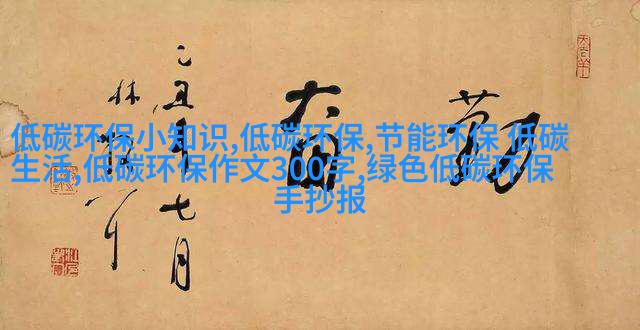 低碳环保小知识,低碳环保,节能环保 低碳
生活,低碳环保作文300字,绿色低碳环保
手抄报
勤奋
乙丑年七月
林散耳